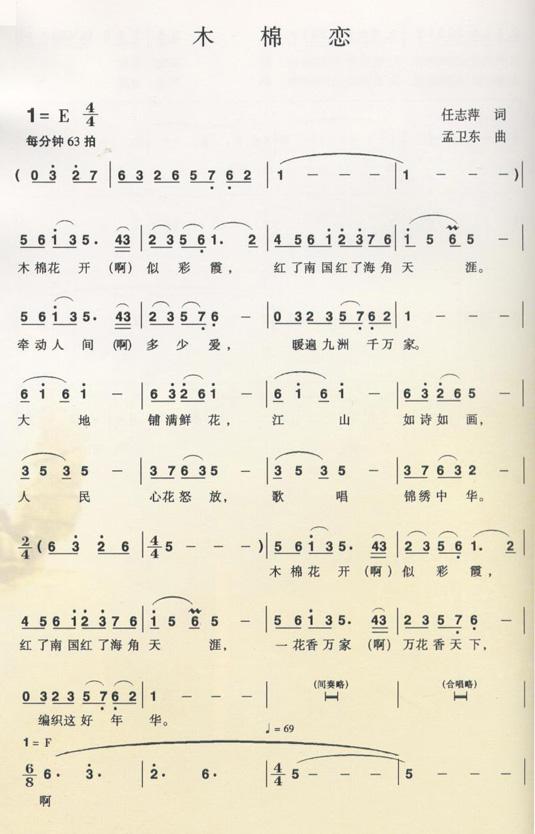 木 棉 恋
1= E 4/4
任志萍 词
每分钟 63 拍
孟卫东 曲
( 0 3 2 7 | 6 3 2 6 5 7 6 2 | 1 － － － | 1 － － － ) |
5 6 1 3 5. 43 | 2 3 5 6 1. 2 | 4 5 6 1 2 3 7 6 | 1 5 6 5 － |
木棉花 开 (啊) 似 彩 霞， 红了南国红了海角 天 涯。
5 6 1 3 5. 43 | 2 3 5 7 6 － | 0 3 2 3 5 7 6 2 | 1 － － － |
牵动人 间 (啊) 多 少 爱， 暖遍九洲 千万 家。
6 1 6 1 － | 6 3 2 6 1 － | 6 1 6 1 － | 6 3 2 6 5 － |
大 地 铺满鲜 花， 江 山 如诗如 画，
3 5 3 5 － | 3 7 6 3 5 － | 3 5 3 5 － | 3 7 6 3 2 － |
人 民 心花怒 放， 歌 唱 锦绣中 华。
2/4 ( 6 3 2 6 | 4/4 5 － － － ) | 5 6 1 3 5. 43 | 2 3 5 6 1. 2 |
木棉花 开 (啊) 似 彩 霞，
4 5 6 1 2 3 7 6 | 1 5 6 5 － | 5 6 1 3 5. 43 | 2 3 5 7 6 － |
红了南国红了海角 天 涯， 一花香万家 (啊) 万花香天下，
0 3 2 3 5 7 6 2 | 1 － － － | (间奏略) | (合唱略) |
编织这好 年 华。
♩= 69
1 = F
6/8 6. 3. | 2. 6. | 4/4 5 － － － | 5 － － － |
啊